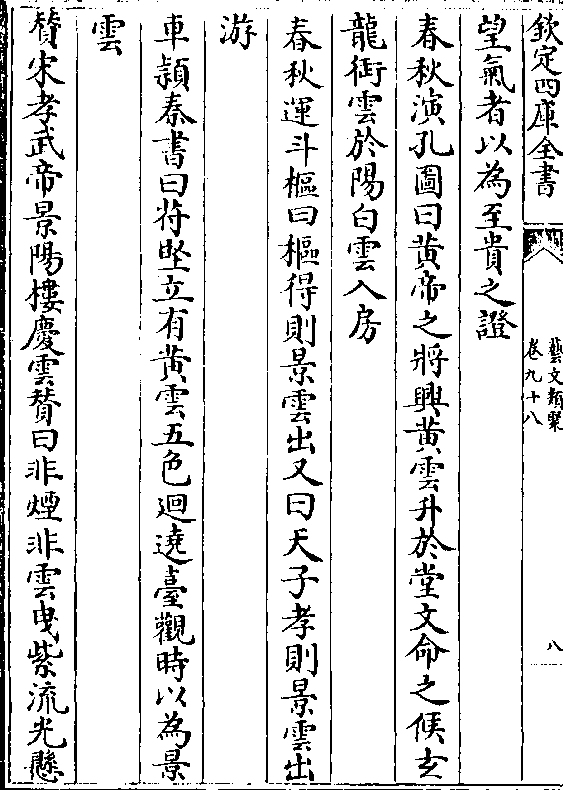 欽定四庫全書
藝文類聚
卷九十八
八
望氣者以為至貴之證
春秋演孔圖曰黄帝之將興黄雲升於堂文命之候玄
龍銜雲於陽白雲入房
春秋運斗樞曰樞得則景雲出又曰天子孝則景雲出
游
車頴秦書曰苻堅立有黄雲五色迴遶臺觀時以為景
雲
贊宋孝武帝景陽樓慶雲贊曰非煙非雲曳紫流光懸